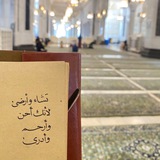 تشاء وأرضى
لأنك أحن
وأرحم
وأدرى